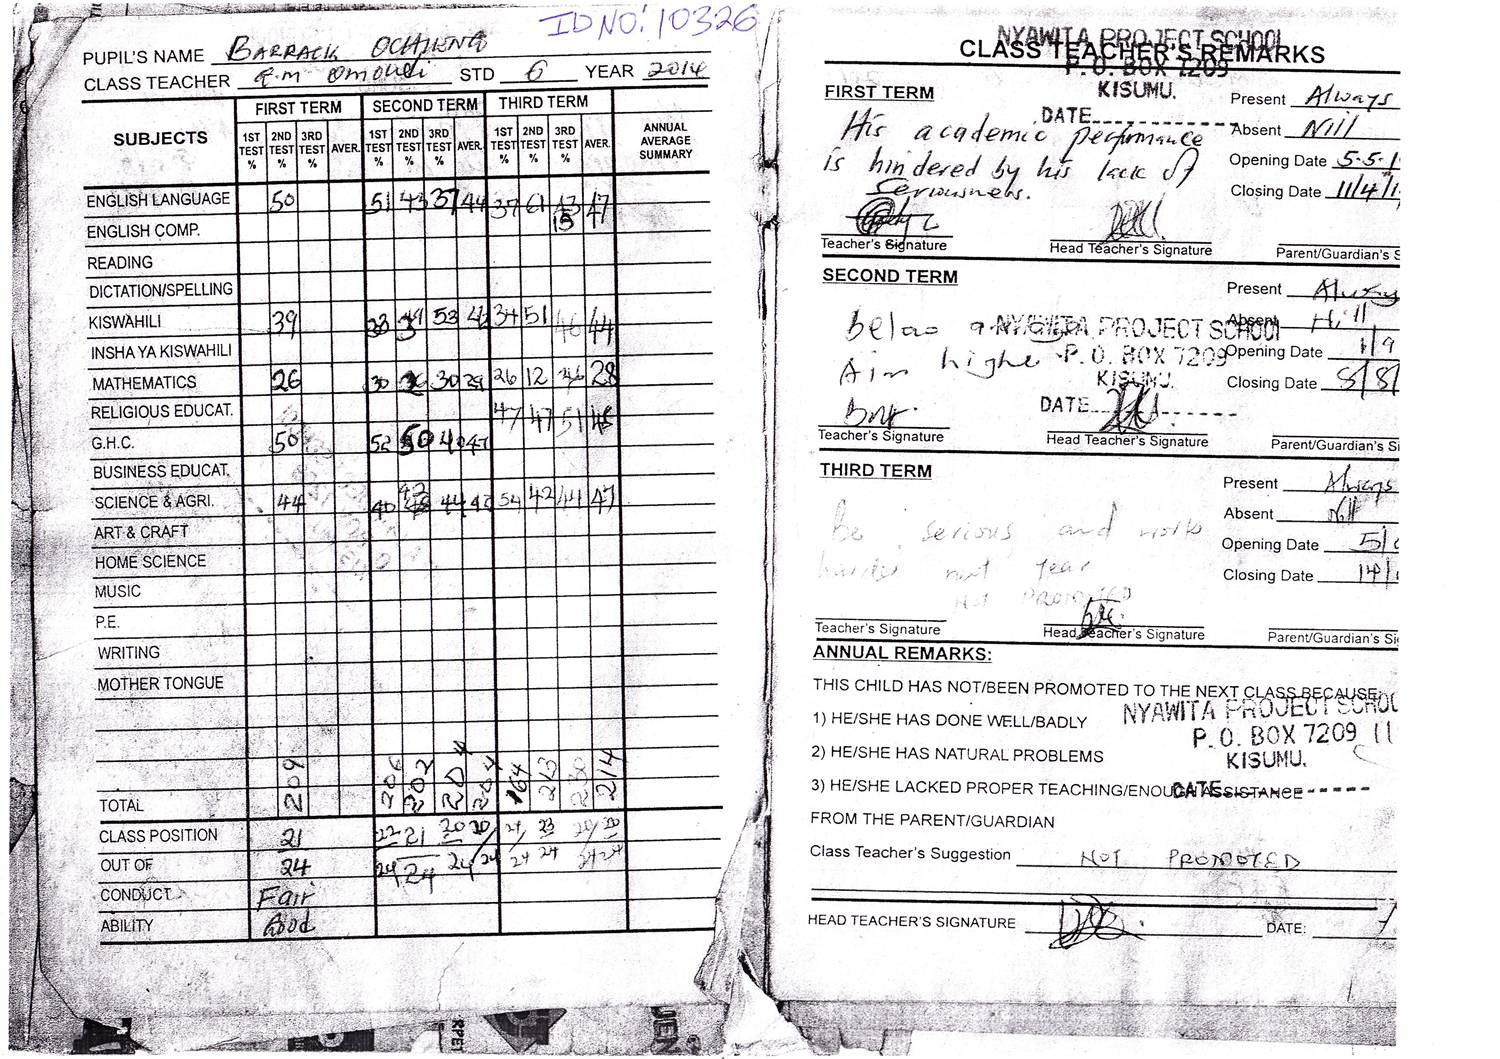 ID NO: 10326
PUPIL'S NAME BARRACK OCHIENG
CLASS TEACHER STD 6 YEAR 2014
SUBJECTS FIRST TERM SECOND TERM THIRD TERM ANNUAL AVERAGE SUMMARY
1ST TEST % 2ND TEST % 3RD TEST % AVER. 1ST TEST % 2ND TEST % 3RD TEST % AVER. 1ST TEST % 2ND TEST % 3RD TEST % AVER.
ENGLISH LANGUAGE 50 51 43 37 44 37 61 43 47
ENGLISH COMP. 15
READING
DICTATION/SPELLING
KISWAHILI 39 53 42 34 51 46 44
INSHA YA KISWAHILI
MATHEMATICS 26 30 26 30 29 26 12 28
RELIGIOUS EDUCAT. 47 47 51
G.H.C. 50 52 50 47
BUSINESS EDUCAT.
SCIENCE & AGRI. 44 40 44 54 42 44 47
ART & CRAFT
HOME SCIENCE
MUSIC
P.E.
WRITING
MOTHER TONGUE
TOTAL 209 206 202 204 204 164 213 230 214
CLASS POSITION 21 22 21 20 20 24 23 20 20
OUT OF 24 24 24 24 24 24 24 24 24
CONDUCT Fair
ABILITY Good
NYAWITA PROJECT SCHOOL
CLASS TEACHER'S REMARKS
P. O. BOX 7209
KISUMU.
DATE
FIRST TERM
Present Always
Absent Nill
Opening Date 5-5-1
Closing Date 11/4/1
His academic performance
is hindered by his lack of
seriousness.
Teacher's Signature Head Teacher's Signature Parent/Guardian's S
SECOND TERM
Present Always
Absent Nill
Opening Date 1/9
Closing Date 8/8/
Below average
Aim higher
NYAWITA PROJECT SCHOOL
P. O. BOX 7209
KISUMU.
DATE
Teacher's Signature Head Teacher's Signature Parent/Guardian's Si
THIRD TERM
Present Always
Absent Nill
Opening Date 5/
Closing Date 14/
Be serious and work
harder next year
NOT PROMOTED
Teacher's Signature Head Teacher's Signature Parent/Guardian's Si
ANNUAL REMARKS:
THIS CHILD HAS NOT/BEEN PROMOTED TO THE NEXT CLASS BECAUSE:
1) HE/SHE HAS DONE WELL/BADLY
NYAWITA PROJECT SCHOOL
P. O. BOX 7209
KISUMU.
DATE
2) HE/SHE HAS NATURAL PROBLEMS
3) HE/SHE LACKED PROPER TEACHING/ENOUGH ASSISTANCE
FROM THE PARENT/GUARDIAN
Class Teacher's Suggestion NOT PROMOTED
HEAD TEACHER'S SIGNATURE DATE: